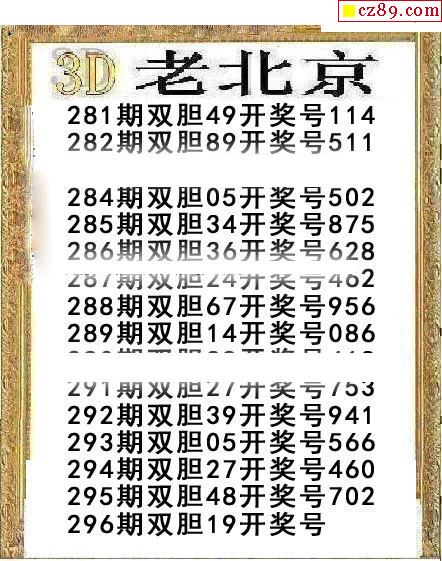 cz89.com
3D 老北京
281期双胆49开奖号114
282期双胆89开奖号511
284期双胆05开奖号502
285期双胆34开奖号875
286期双胆36开奖号628
287期双胆24开奖号462
288期双胆67开奖号956
289期双胆14开奖号086
291期双胆27开奖号753
292期双胆39开奖号941
293期双胆05开奖号566
294期双胆27开奖号460
295期双胆48开奖号702
296期双胆19开奖号